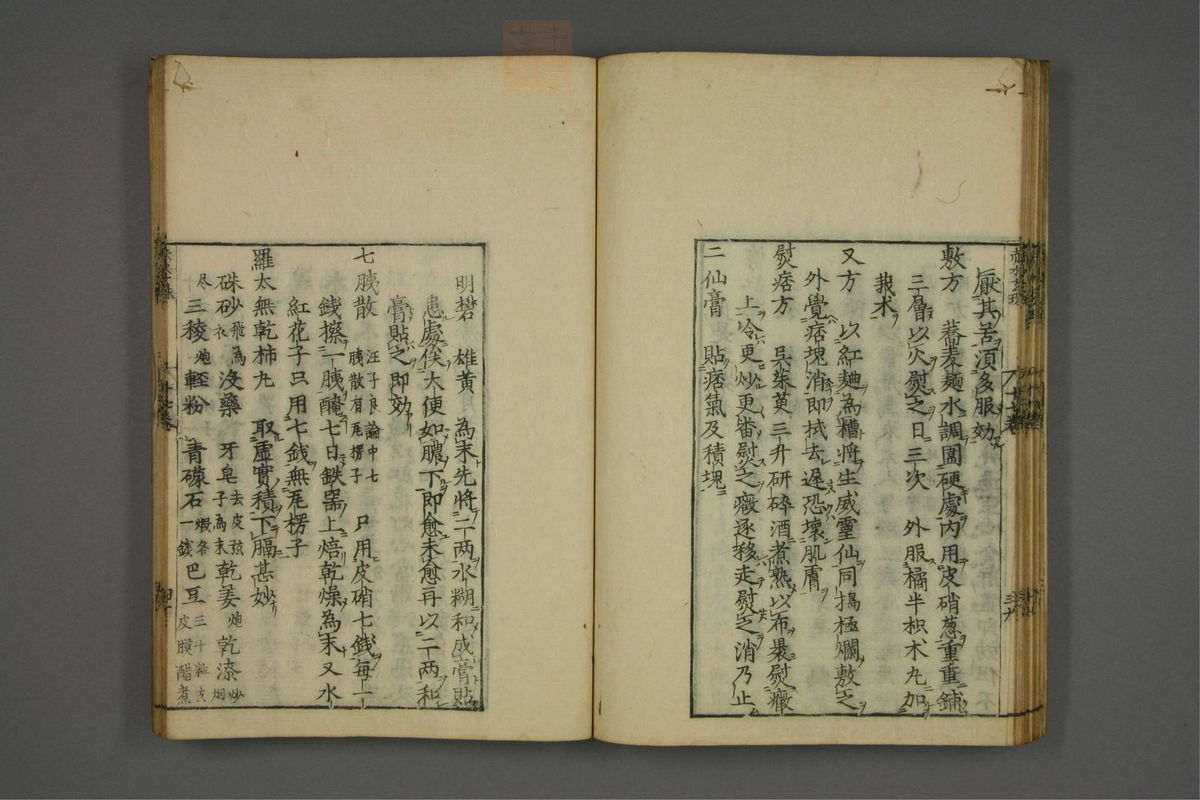 厭其苦須多服効
敷方　蕎麦麺水調圍硬處内用皮硝葱重重鋪
三層以火熨之日三次　外服橘半枳术丸加
莪术
又方　以紅麯為糟將生威靈仙同搗極爛敷之
外覺痞塊消即拭去遲恐壞肌膚
熨痞方　呉茱萸三升研碎酒煮熟以布裹熨癥
上冷更炒更畨熨之癥逐移走熨之消乃止
二仙膏　貼痞氣及積塊
明礬　雄黄　為末先將二两水糊和成膏貼
患處俟大便如膿下即愈未愈再以二两和
膏貼之即効
七胰散　汪子良論中七胰散有瓦楞子　只用皮硝七錢每上一
錢擦一胰醃七日鉄器上焙乾燥為末又水
紅花子只用七錢無瓦楞子
羅太無乾柿丸　取虚實積下膈甚妙
硃砂飛為衣　没藥　牙皂去皮弦子為末　乾姜炮　乾漆炒烟
尽　三稜炮　輕粉　青礞石各一錢　巴豆三十粒去皮膜醋煮